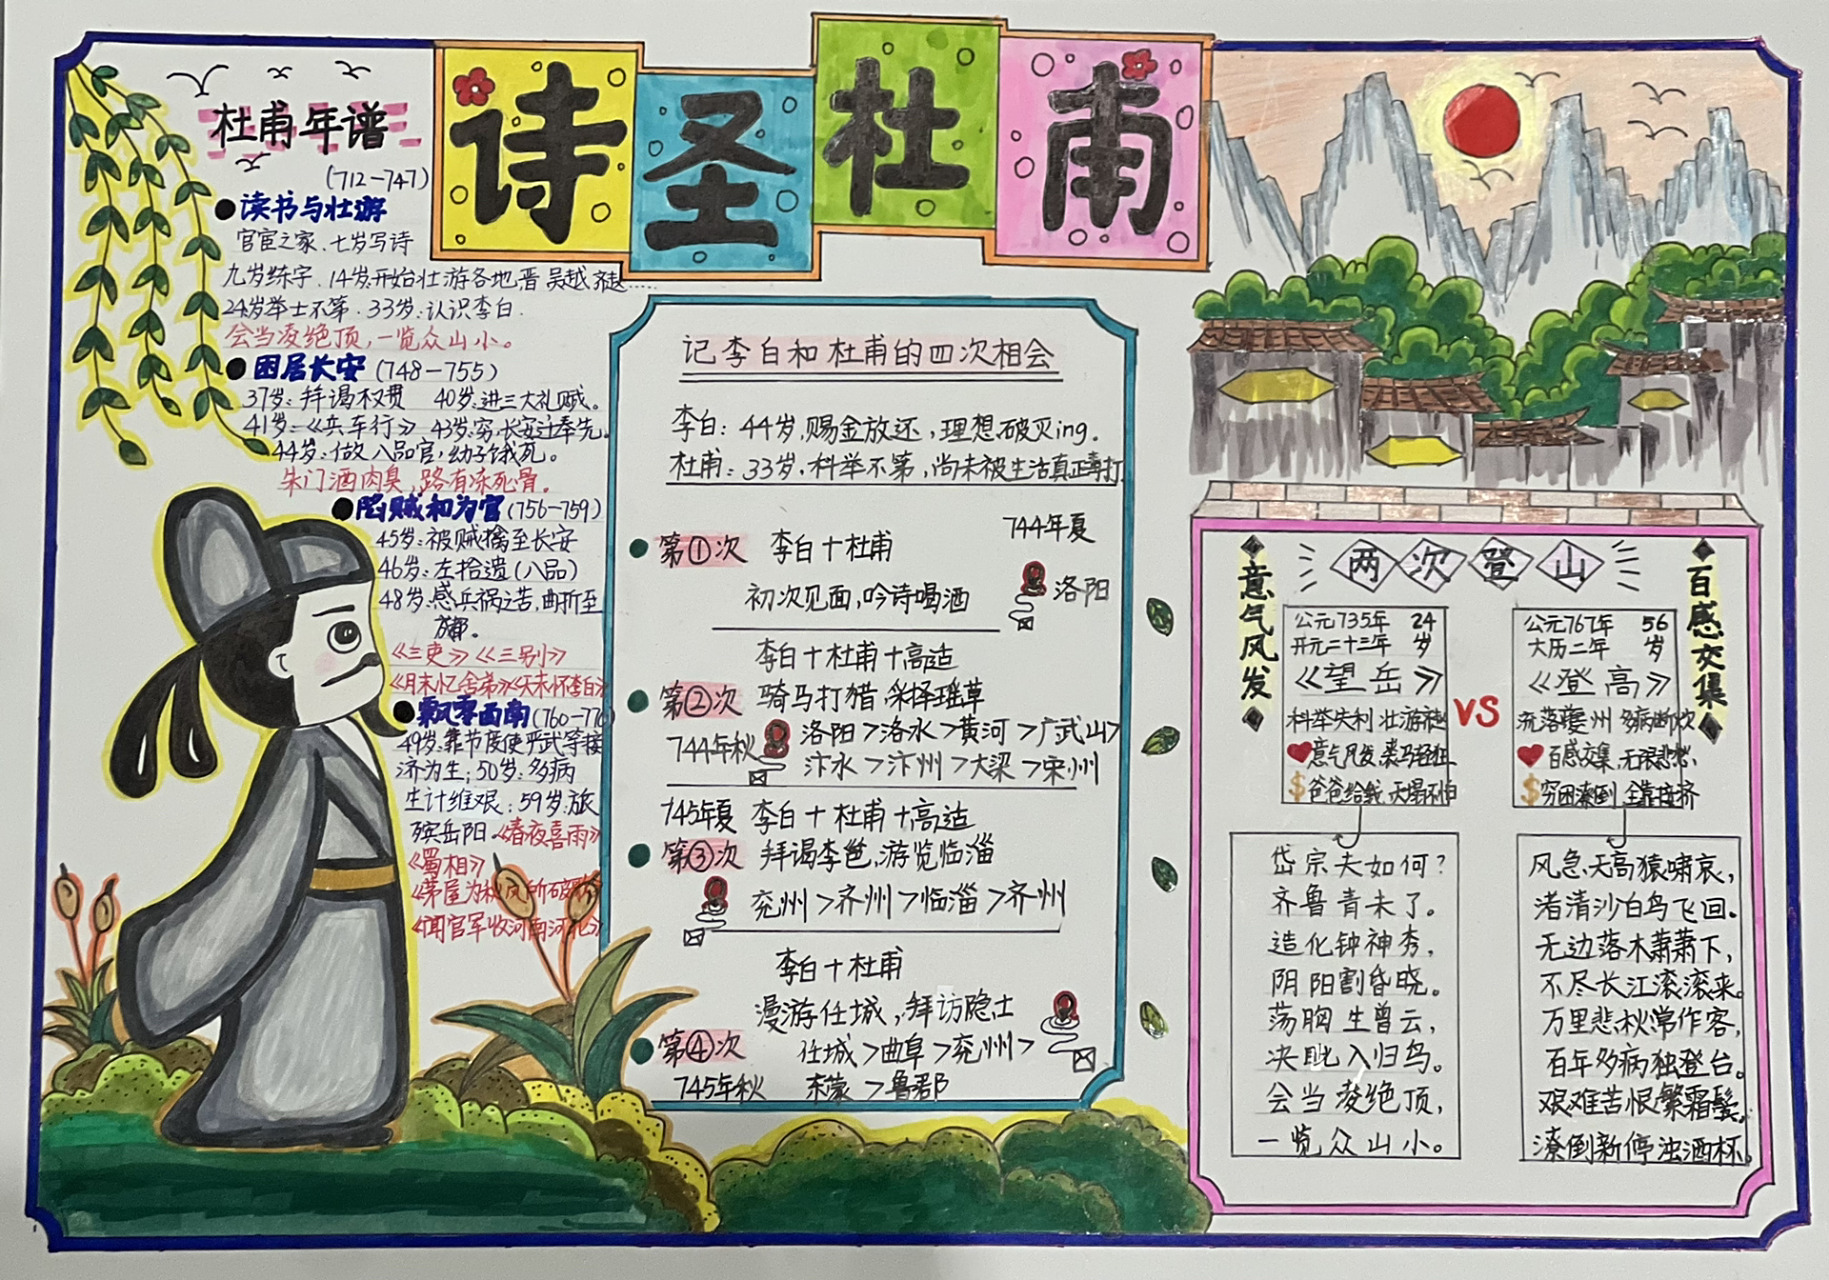 诗圣杜甫
杜甫年谱
(712-747)
读书与壮游
官宦之家.七岁写诗
九岁练字.14岁开始壮游各地,晋 吴越 齐赵……
24岁举士不第.33岁:认识李白.
会当凌绝顶,一览众山小。
困居长安 (748-755)
37岁:拜谒权贵 40岁:进三大礼赋。
41岁:《兵车行》 43岁:穷,长安过奉先。
44岁:做八品官,幼子饿死。
朱门酒肉臭,路有冻死骨。
陷贼和为官 (756-759)
45岁:被贼擒至长安
46岁:左拾遗(八品)
48岁:感兵祸之苦,曲折至
《三吏》《三别》
《月末忆舍弟》《天末怀李白》
飘零西南 (760-770)
49岁:靠节度使严武等接
济为生;50岁:多病
生计维艰;59岁:旅
殡岳阳 《春夜喜雨》
《蜀相》
《茅屋为秋风所破
《闻官军收河南河北》
记李白和杜甫的四次相会
李白:44岁,赐金放还,理想破灭ing.
杜甫:33岁,科举不第,尚未被生活真正毒打.
第①次 李白+杜甫 744年夏
初次见面,吟诗喝酒 洛阳
李白+杜甫+高适
第②次 骑马打猎,采择瑶草
744年秋 洛阳>洛水>黄河>广武山>
汴水>汴州>大梁>宋州
745年夏 李白+杜甫+高适
第③次 拜谒李邕,游览临淄
兖州>齐州>临淄>齐州
李白+杜甫
漫游任城,拜访隐士
第④次 任城>曲阜>兖州>
745年秋 东蒙>鲁郡
两次登山
意气风发
公元735年 24岁
开元二十三年
《望岳》
科举失利 壮游
意气风发,裘马轻狂
$爸爸给钱,天塌不怕
VS
百感交集
公元767年 56岁
大历二年
《登高》
流落夔州 多病
百感交集,无限悲
$穷困潦倒 全靠接济
岱宗夫如何?
齐鲁青未了。
造化钟神秀,
阴阳割昏晓。
荡胸生曾云,
决眦入归鸟。
会当凌绝顶,
一览众山小。
风急天高猿啸哀,
渚清沙白鸟飞回。
无边落木萧萧下,
不尽长江滚滚来。
万里悲秋常作客,
百年多病独登台。
艰难苦恨繁霜鬓,
潦倒新停浊酒杯。